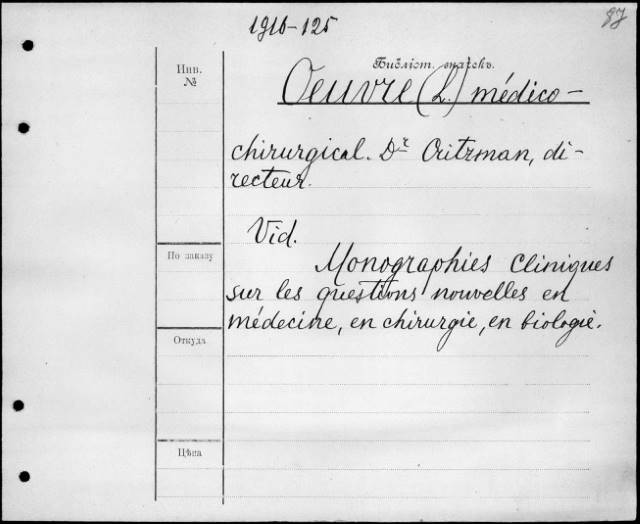 1916-125
87
Инв. №
Библіот. значекъ.
Oeuvre (L.) médico-
chirurgical. Dr Critzman, di-
recteur.
Vid.
Monographies cliniques
По заказу
sur les questions nouvelles en
médecine, en chirurgie, en biologie.
Откуда
Цѣна